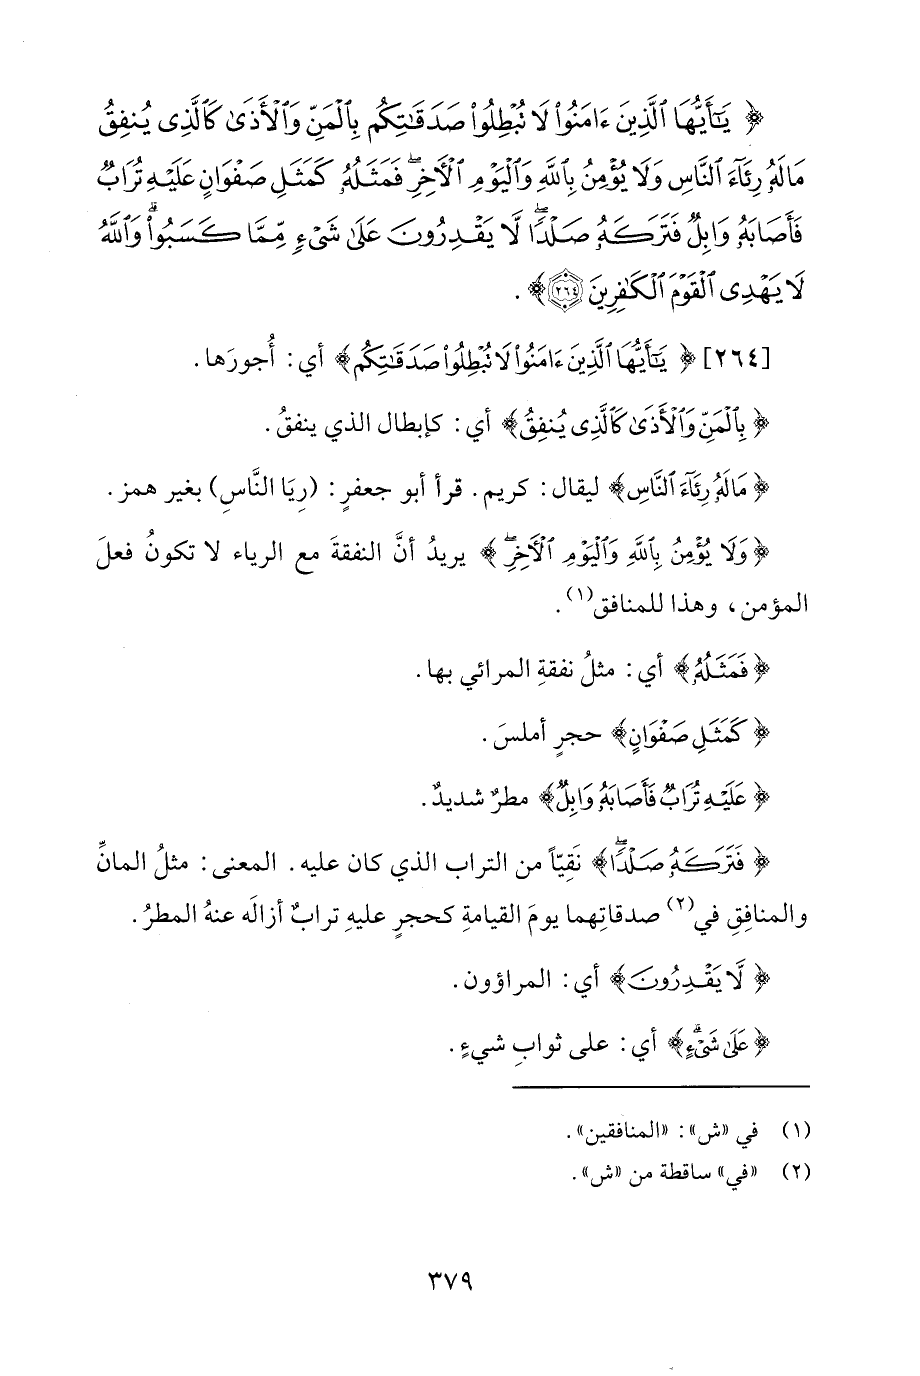 ﴿ يَٰٓأَيُّهَا ٱلَّذِينَ ءَامَنُوا۟ لَا تُبْطِلُوا۟ صَدَقَٰتِكُم بِٱلْمَنِّ وَٱلْأَذَىٰ كَٱلَّذِى يُنفِقُ
مَالَهُۥ رِئَآءَ ٱلنَّاسِ وَلَا يُؤْمِنُ بِٱللَّهِ وَٱلْيَوْمِ ٱلْءَاخِرِ ۖ فَمَثَلُهُۥ كَمَثَلِ صَفْوَانٍ عَلَيْهِ تُرَابٌ
فَأَصَابَهُۥ وَابِلٌ فَتَرَكَهُۥ صَلْدًا ۖ لَّا يَقْدِرُونَ عَلَىٰ شَىْءٍ مِّمَّا كَسَبُوا۟ ۗ وَٱللَّهُ
لَا يَهْدِى ٱلْقَوْمَ ٱلْكَٰفِرِينَ ٢٦٤ ﴾ .
[٢٦٤] ﴿ يَٰٓأَيُّهَا ٱلَّذِينَ ءَامَنُوا۟ لَا تُبْطِلُوا۟ صَدَقَٰتِكُم ﴾ أي: أُجورَها .
﴿ بِٱلْمَنِّ وَٱلْأَذَىٰ كَٱلَّذِى يُنفِقُ ﴾ أي: كإبطال الذي ينفقُ .
﴿ مَالَهُۥ رِئَآءَ ٱلنَّاسِ ﴾ ليقال: كريم . قرأ أبو جعفرٍ: (رِيَا النَّاسِ) بغير همز .
﴿ وَلَا يُؤْمِنُ بِٱللَّهِ وَٱلْيَوْمِ ٱلْءَاخِرِ ۖ ﴾ يريدُ أنَّ النفقةَ مع الرياء لا تكونُ فعلَ
المؤمن، وهذا للمنافق(١) .
﴿ فَمَثَلُهُۥ ﴾ أي: مثلُ نفقةِ المرائي بها .
﴿ كَمَثَلِ صَفْوَانٍ ﴾ حجرٍ أملسَ .
﴿ عَلَيْهِ تُرَابٌ فَأَصَابَهُۥ وَابِلٌ ﴾ مطرٌ شديدٌ .
﴿ فَتَرَكَهُۥ صَلْدًا ۖ ﴾ نَقِيّاً من التراب الذي كان عليه . المعنى: مثلُ المانِّ
والمنافِقِ في(٢) صدقاتِهما يومَ القيامةِ كحجرٍ عليهِ ترابٌ أزالَه عنهُ المطرُ .
﴿ لَّا يَقْدِرُونَ ﴾ أي: المراؤون .
﴿ عَلَىٰ شَىْءٍ ۗ ﴾ أي: على ثوابِ شيءٍ .
(١) في «ش»: «المنافقين» .
(٢) «في» ساقطة من «ش» .
٣٧٩